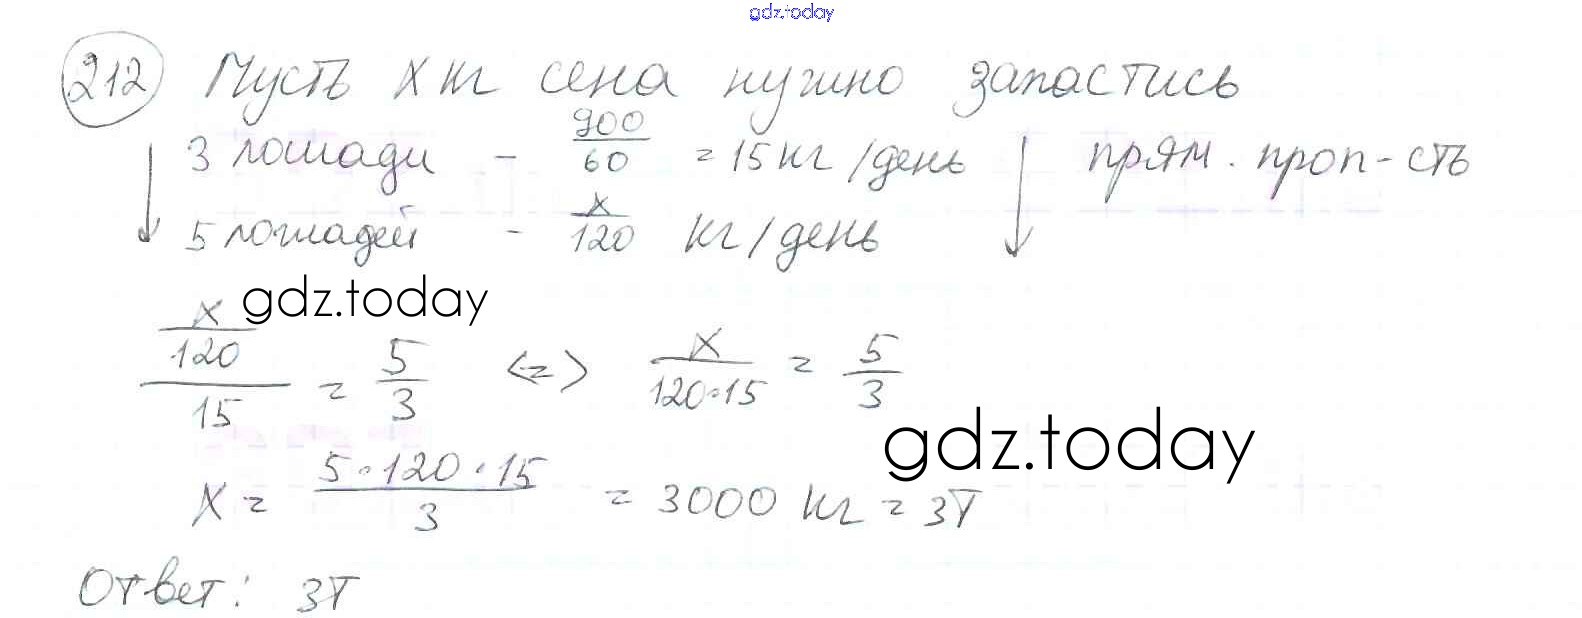 gdz.today
212 Пусть x кг сена нужно запастись
3 лошади - 900/60 = 15 кг/день прям. проп-сть
5 лошадей - x/120 кг/день
gdz.today
x/120/15 = 5/3 <=> x/120·15 = 5/3
gdz.today
x = 5·120·15/3 = 3000 кг = 3т
Ответ: 3т